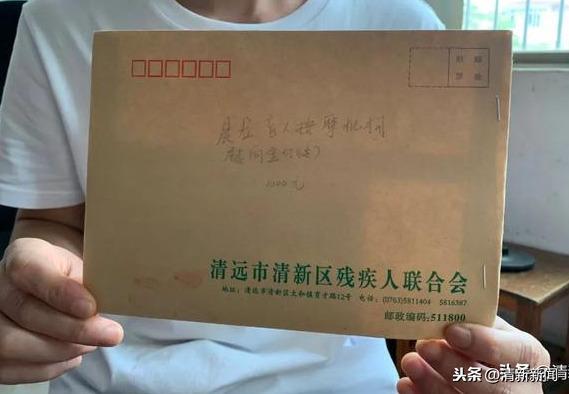 贴 邮
票 处
盲人按摩机构
慰问金
1000元
清远市清新区残疾人联合会
地址：清远市清新区太和镇育才路12号 电话：(0763)5811404 5816387
邮政编码：511800
头条 @清
头条 @清新新闻